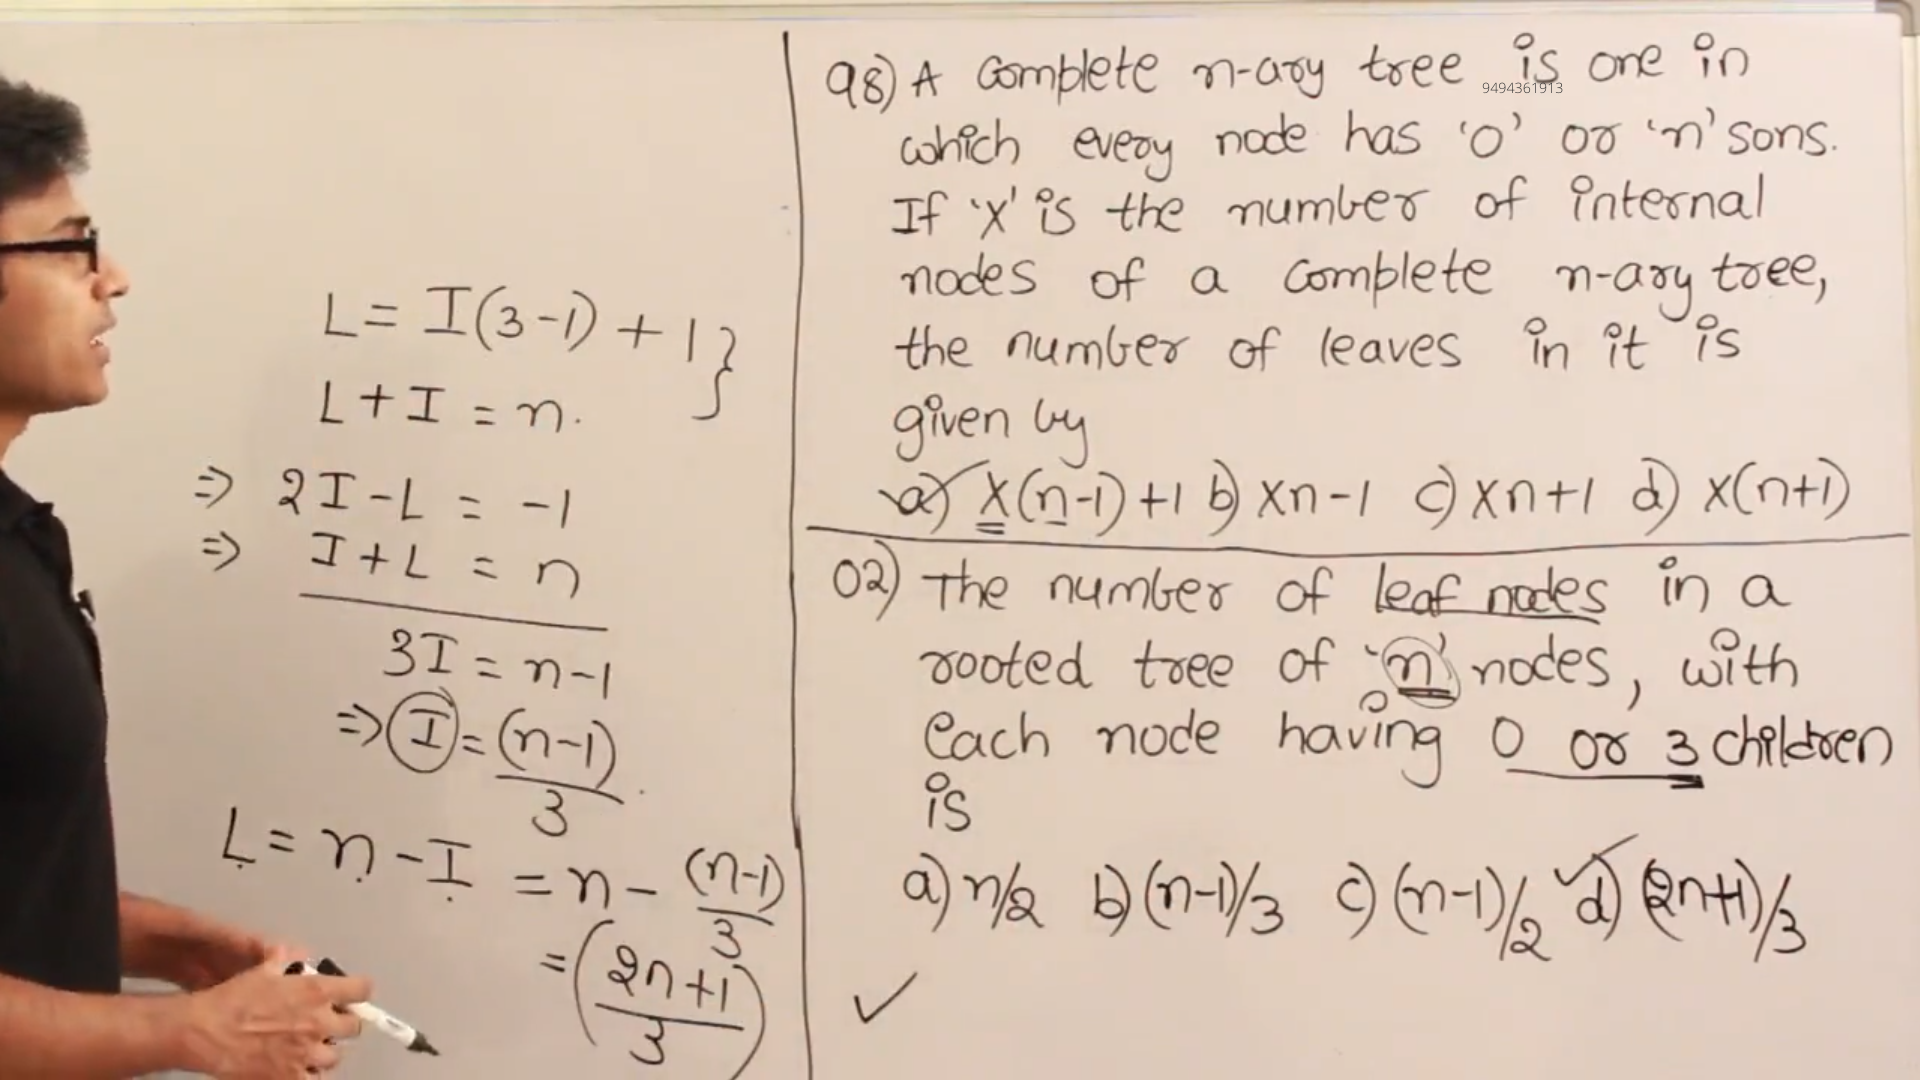 L = I(3-1) + 1 }
L + I = n.
=> 2I - L = -1
=> I + L = n
3I = n-1
=> I = (n-1)/3
L = n - I = n - (n-1)/3
= (2n+1/3)
98) A complete n-ary tree is one in
9494361913
which every node has '0' or 'n' sons.
If 'X' is the number of internal
nodes of a complete n-ary tree,
the number of leaves in it is
given by
a) X(n-1)+1 b) Xn-1 c) Xn+1 d) X(n+1)
02) The number of leaf nodes in a
rooted tree of 'n' nodes, with
each node having 0 or 3 children
is
a) n/2 b) (n-1)/3 c) (n-1)/2 d) (2n+1)/3